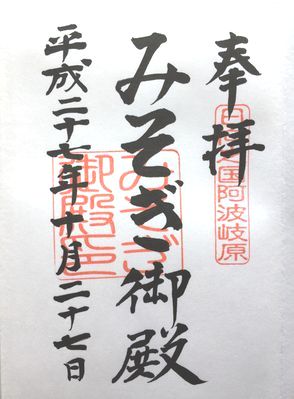 奉拝
日向国阿波岐原
みそぎ御殿
みそぎ御殿印
平成二十七年十月二十七日